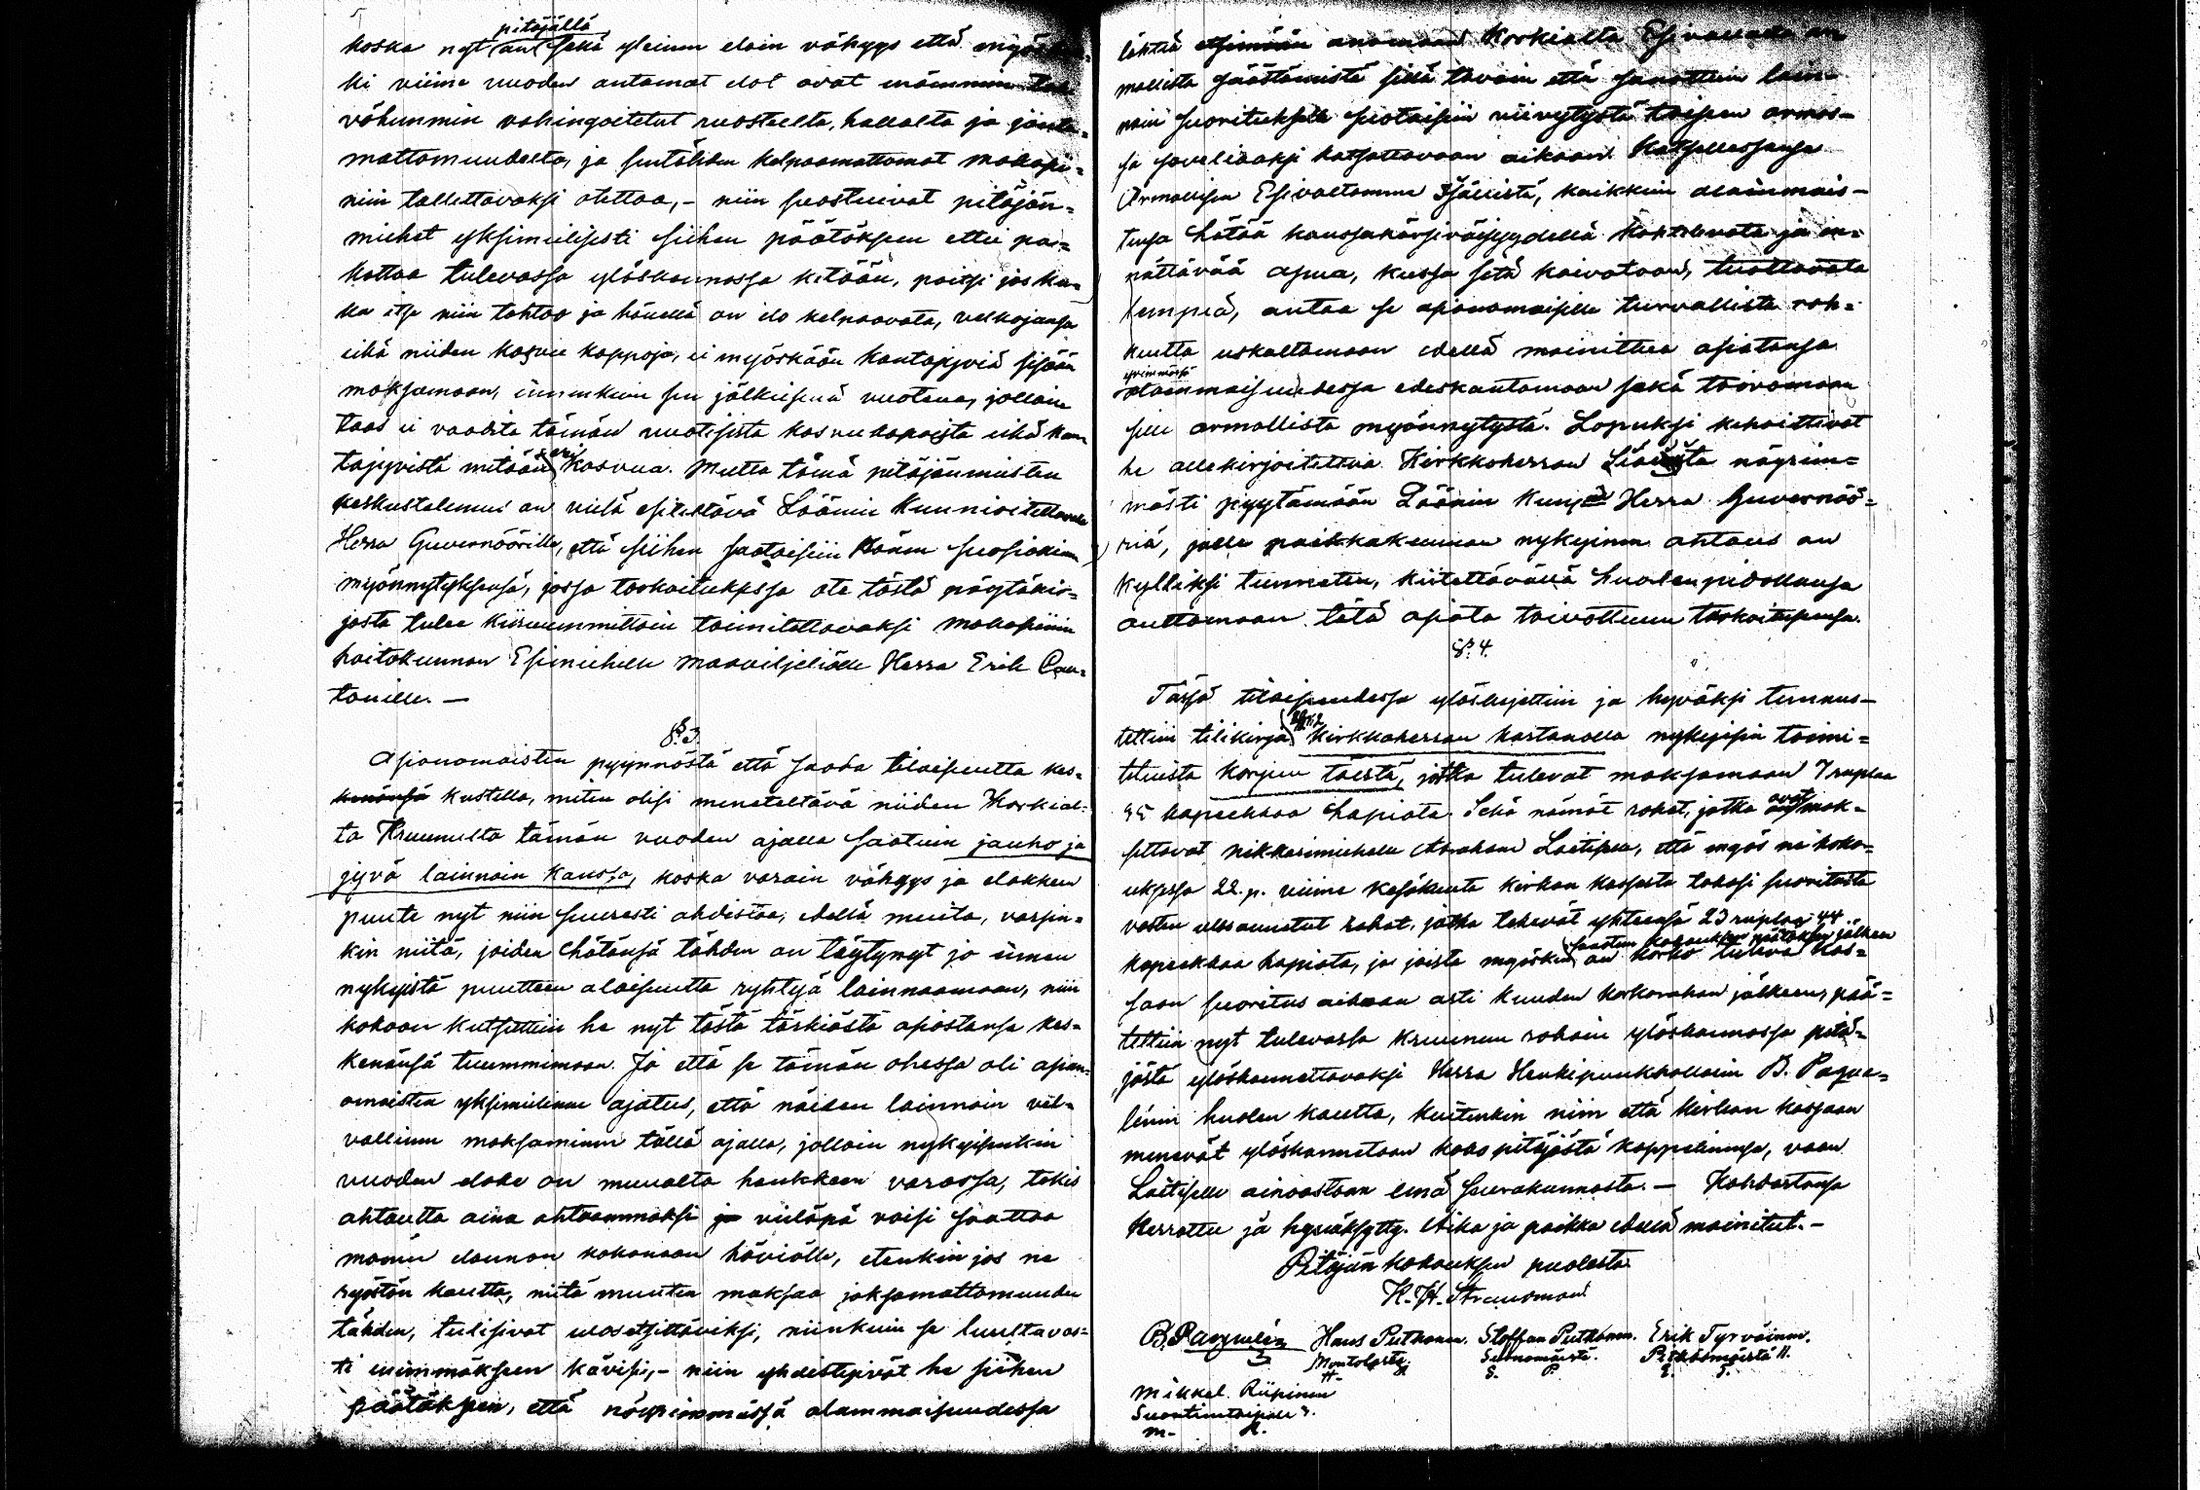 pitäjällä
koska nyt on sekä yleinen elain vähyys että myöskin
ki viime vuoden antamat elot ovat enämmin tai
vähemmin vahingoitetut ruosteelta, hallalta ja joutu=
mattomuudelta, ja sentähden kelpaamattomat makasi=
niin tallettavaksi otettaa, – niin suostuivat pitäjän=
miehet yksimielisesti siihen päätökseen ettei pa=
kottaa tulevassa ylöskannossa ketään, paitsi jos ku=
ka itse niin tahtoo ja hänellä on elo kelpaavata, velkojansa
eikä niiden kasvu kappoja, ei myöskään kantojyviä sisään
maksamaan, ennenkuin sen jälkeisenä vuotena, jolloin
taas ei vaadita tämän vuotisista kasvukapoista eikä kan
tojyvistä mitään eri kasvua. Mutta tämä pitäjänmiesten
keskustelemus on vielä esitettävä Läänin Kunnioitettavalle
Herra Guvernöörille, että siihen saataisiin Hänen suosiollinen
myönnytyksensä, jossa tarkoituksessa ote tästä pöytäkir=
jasta tulee kiiruummittain toimitettavaksi makasiinin
hoitokunnan Esimiehelle maaviljeliälle Herra Erik Cau=
tonille. –
§ 3.
Asianomaisten pyynnöstä että saada tilaisuutta kes=
kustella, miten olisi meneteltävä niiden Korkial=
ta Kruunulta tämän vuoden ajalla saatuin jauho ja
jyvä lainain kanssa, koska varain vähyys ja elakkeen
puute nyt niin suuresti ahdistaa, edellä muita, varsin=
kin niitä, joiden hätänsä tähden on täytynyt jo ennen
nykyistä puutteen alaisuutta ryhtyä lainnaamaan, niin
kokoon kutsuttiin he nyt tästä tärkiästä asiastansa kes=
kenänsä tuummimaan. Ja että se tämän ohessa oli asian=
omaisten yksimielinen ajatus, että näiden lainnain vel=
vollinen maksaminen tällä ajalla, jolloin nykyisenkin
vuoden elake on muualta hankkeen varassa, tekis
ahtautta aina ahtaammaksi ja vieläpä voisi saattaa
monen elannon kokonaan häviölle, etenkin jos ne
ryöstön kautta, niitä muuten maksaa jaksamattomuuden
tähden, tulisivat ulosetsittäviksi, niinkuin se luultavas=
ti enimmäkseen kävisi, – niin yhdistysivät he siihen
päätöksen, että nöyrimmässä alammaisuudessa
lähteä etsimään anomaan Korkialta Esivallalta ar
mollista päästämistä sillä tavoin että sanottuin lain=
nain suorituksella suotaisiin viivytystä toisen armos=
sa soveliaaksi katsottavaan aikaan. Katsellessansa
Armollisen Esivaltamme Isällistä, kaikkein alammais=
tensa hätää kanssakärsiväisyydellä kohtelevata ja en=
nättävää apua, kussa sitä kaivataan, tuottavata
lempeä, antaa se asianomaisille turvallista roh=
keutta uskaltamaan edellä mainittua asiatansa
syvimmässä
alammaisuudessa edeskantamaan sekä toivomaan
sille armollista myönnytystä. Lopuksi kehoittivat
he allekirjoitettua Kirkkoherran Sijaista nöyrim=
mästi pyytämään Läänin Kuvern Herra Guvernöö=
riä, jolle paikkakunnan nykyinen ahtaus on
kylliksi tunnettu, kiitettävällä huolenpidollansa
auttamaan tätä asiata toivottuun tarkoitukseensa.
§ 4.
Tässä tilaisuudessa ylösluettiin ja hyväksi tunnus=
tettiin tilikirja kirkkoherran kartanolla nykyisin toimi=
tetuista korjuu töistä, jotka tulevat maksamaan 7 ruplaa
95 kapeekkaa hapiata. Sekä nämät rahat, jotka ovat mak=
settavat nikkarimiehelle Abraham Laitiselle, että myös ne koko=
uksessa 22. p. viime Kesäkuuta kirkon kassasta takasi suoritusta
vasten ulosannetut rahat, jotka tekevät yhteensä 23 ruplaa 44
kapeekkaa hapiata, ja joista myöskin saatun kokouksen päätöksen jälkeen on korko tuleva kas=
saan suoritus aikaan asti kuuden korkorahan jälkeen, pää=
tettiin nyt tulevassa Kruunun rahain ylöskannossa pitä=
jästä ylöskannettavaksi Herra Henkipuukhollarin B. Paque=
linin huolen kautta, kuitenkin niin että kirkon kassaan
menevät ylöskannetaan koko pitäjästä kappelinensa, vaan
Laitiselle ainoastaan emä seurakunnasta. – Kohdastansa
kerrottu ja hyväksytty. Aika ja paikka edellä mainitut. –
Pitäjän kokouksen puolesta
K. H. Strandman
B. Paquelin Hans Putkonen. Staffan Putkonen. Erik Tyrväinen.
Suonomäestä. Pitkäsmäestä 11.
S. P. E. T.
Mikkel Riipinen
Suontientaipale 2.
M. R.